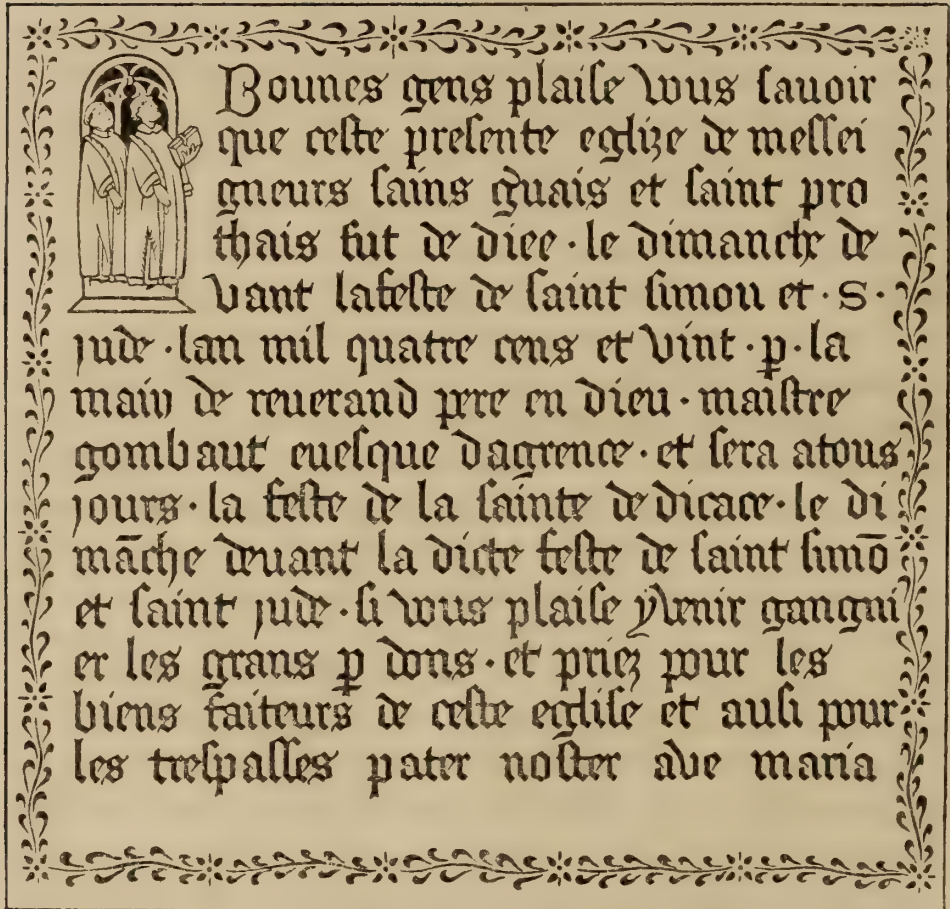 Bounes gens plaise vous sauoir
que ceste presente eglize de messei
gneurs sains gỉuais et saint pro
thais fut de diee · le dimanche de
vant lafeste de saint simou et · s ·
jude · lan mil quatre cens et vint · ꝑ · la
main de reuerand pere en dieu · maistre
gombaut euesque dagrence · et sera atous
jours · la feste de la sainte de dicace · le di
māche deuant la dicte feste de saint simō
et saint jude · si vous plaise y venir gangni
er les grans ꝑ dons · et priez pour les
biens faiteurs de ceste eglise et ausi pour
les trespasses pater noster ave maria